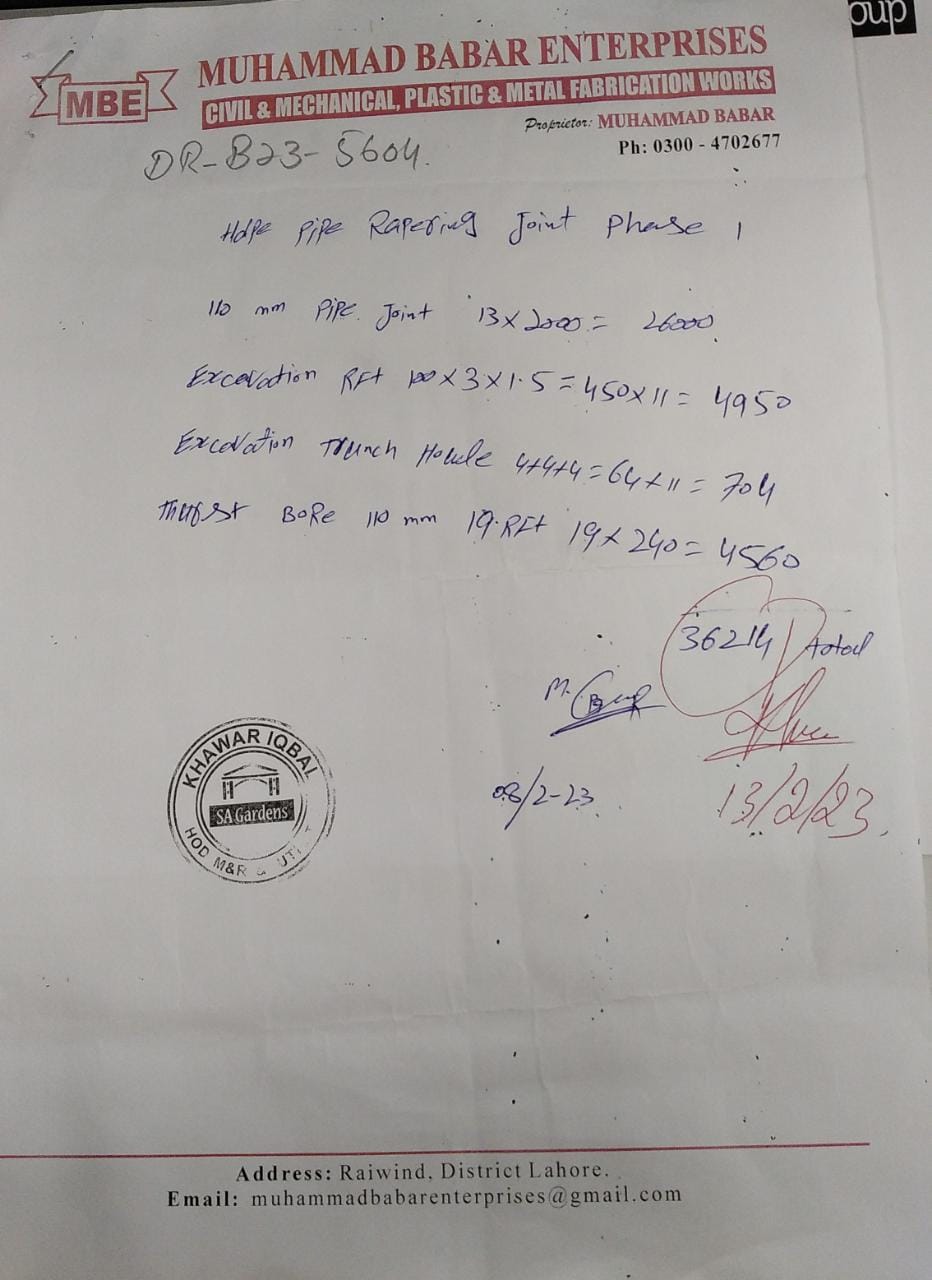 oup
MBE
MUHAMMAD BABAR ENTERPRISES
CIVIL & MECHANICAL, PLASTIC & METAL FABRICATION WORKS
Proprietor: MUHAMMAD BABAR
Ph: 0300 - 4702677
DR-B23-5604.
Hdpe PiPe Rapering Joint Phase 1
110 mm PiPe Joint 13×2000= 26000
Excavation RFt 100×3×1.5=450×11= 4950
Excavation Trunch Houle 4+4+4=64×11= 704
Thurst BoRe 110 mm 19.RFt 19×240= 4560
36214 total
08/2-23
13/2/23
KHAWAR IQBAL
SA Gardens
HOD M&R & UTI
Address: Raiwind, District Lahore.
Email: muhammadbabarenterprises@gmail.com